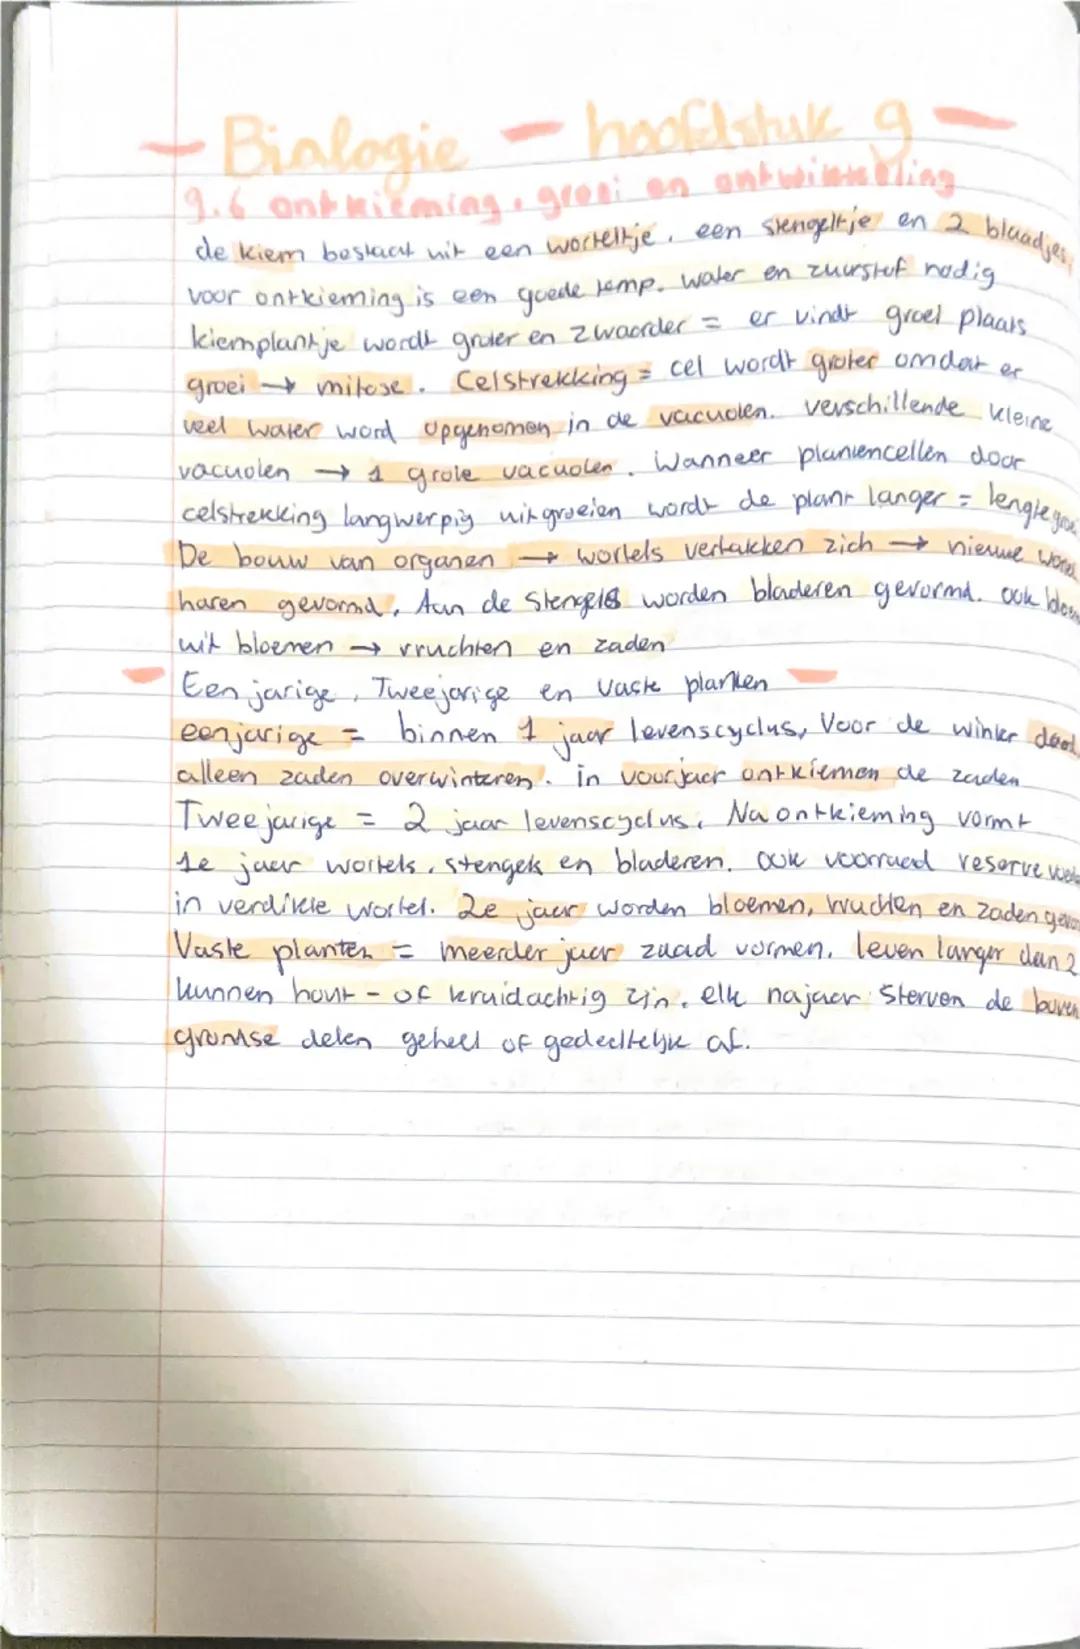 - Biologie - hoofdstuk 9 -
9.6 ontkieming, groei en ontwikkeling
de kiem bestaat uit een worteltje, een stengeltje en 2 blaadjes,
voor ontkieming is een goede temp. water en zuurstof nodig
kiemplantje wordt groter en zwaarder = er vindt groei plaats
groei → mitose. Celstrekking = cel wordt groter omdat er
veel water word opgenomen in de vacuolen. verschillende kleine
vacuolen → 1 grote vacuolen. Wanneer plantencellen door
celstrekking langwerpig uitgroeien wordt de plant langer = lengte
De bouw van organen → wortels vertakken zich → nieuwe
haren gevormd. Aan de stengels worden bladeren gevormd. ook
uit bloemen → vruchten en zaden
- Eenjarige, Tweejarige en vaste planten -
eenjarige = binnen 1 jaar levenscyclus, Voor de winter dood.
alleen zaden overwinteren. in voorjaar ontkiemen de zaden
Tweejarige = 2 jaar levenscyclus. Na ontkieming vormt
1e jaar wortels, stengels en bladeren. ook voorraad reserve
in verdikte wortel. 2e jaar worden bloemen, vruchten en zaden
Vaste planten = meerder jaar zaad vormen. leven langer dan 2
kunnen hout- of kruidachtig zijn. elk najaar sterven de boven
grondse delen geheel of gedeeltelijk af.